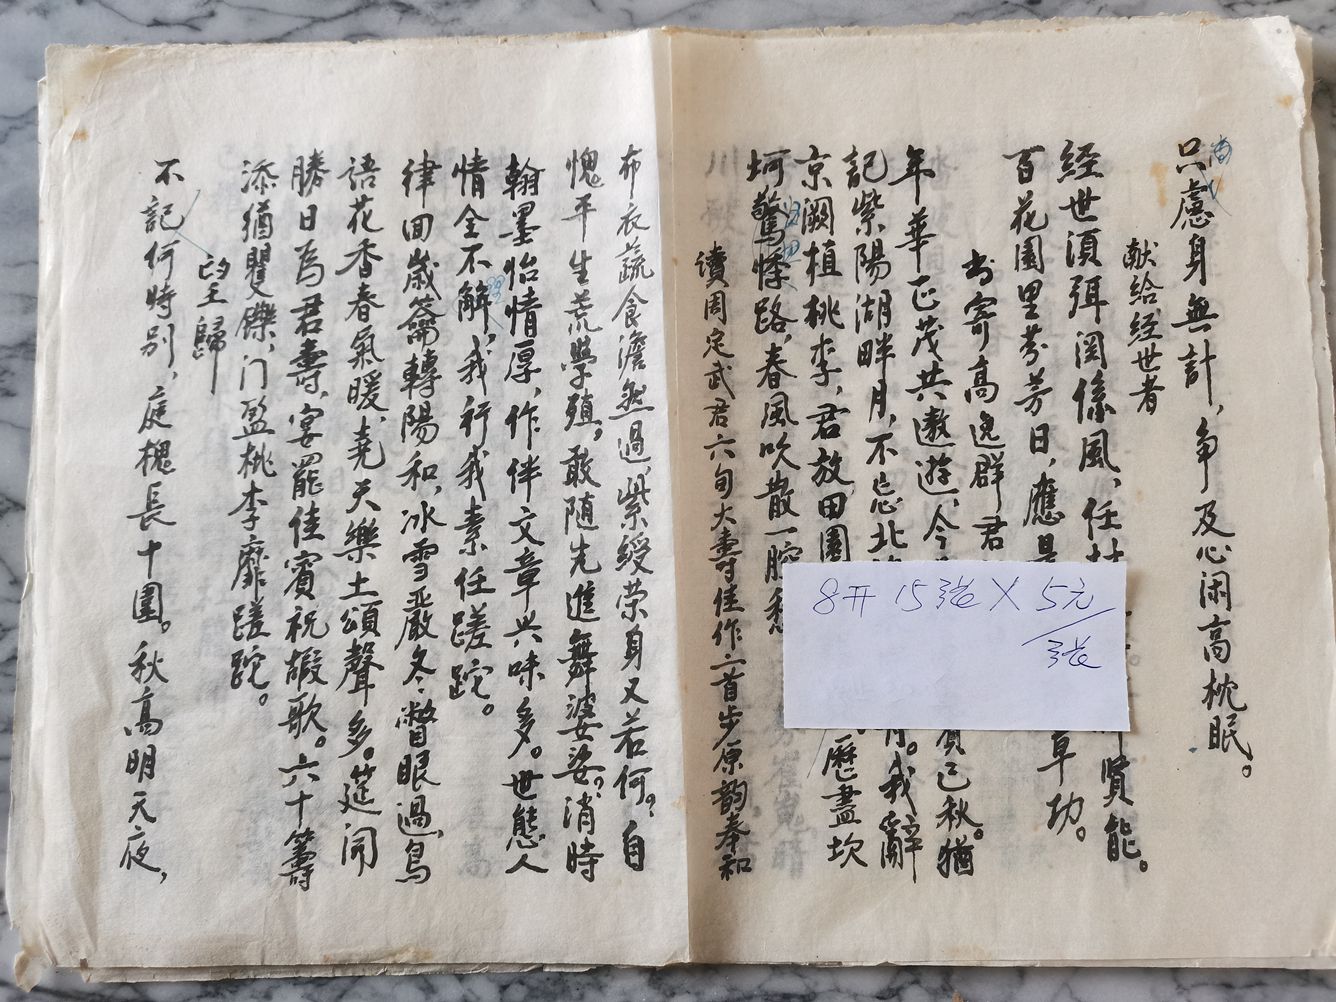 只慮身無計，争及心闲高枕眠。
献给經世者
经世須弭関係風，任
賢能。
百花園里芬芳日，應是
草功。
寄高逸群君
年華正茂共遨遊，今
已秋。猶
記紫陽湖畔月，不忘北
月。我辭
京闕植桃李，君放田園
歷盡坎
坷驚悸路，春風吹散一腔愁
讀周定武君六旬大壽佳作六首步原韵奉和
布衣蔬食澹然過，紫綬荣身又若何？自
愧平生荒學殖，敢随先進舞婆娑？消時
翰墨怡情厚，作伴文章興味多。世態人
情全不解，我行我素任蹉跎。
律回歲籥轉陽和，冰雪嚴冬瞥眼過，鳥
語花香春氣暖，堯天樂土頌聲多。筵開
勝日為君壽，宴罷佳賓祝嘏歌。六十籌
添猶矍鑠，门盈桃李靡蹉跎。
望歸
不記何時别，庭槐長十圍。秋高明天夜，
8开 15张 X 5元/张